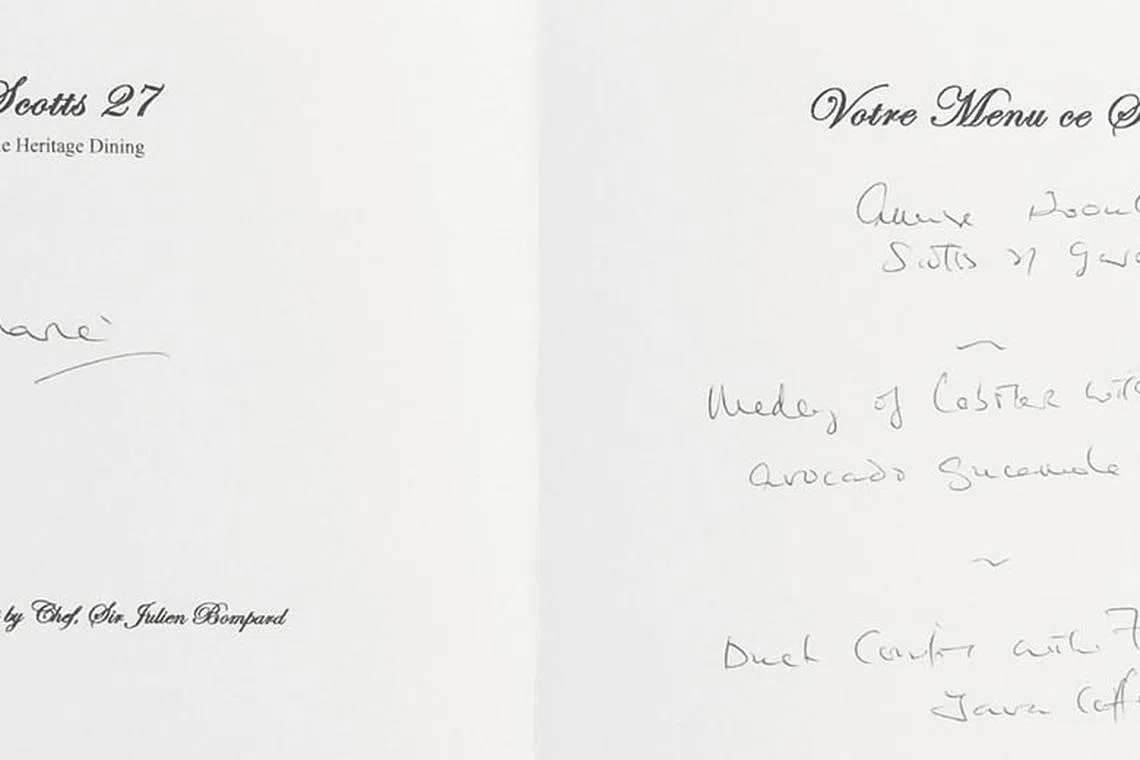 Scotts 27
e Heritage Dining
by Chef, Sir Julien Bompard
Votre Menu ce S
Scotts 27
~
Medley of Lobster with
Avocado Guacamole
~
Duck Confit with
Java Coff